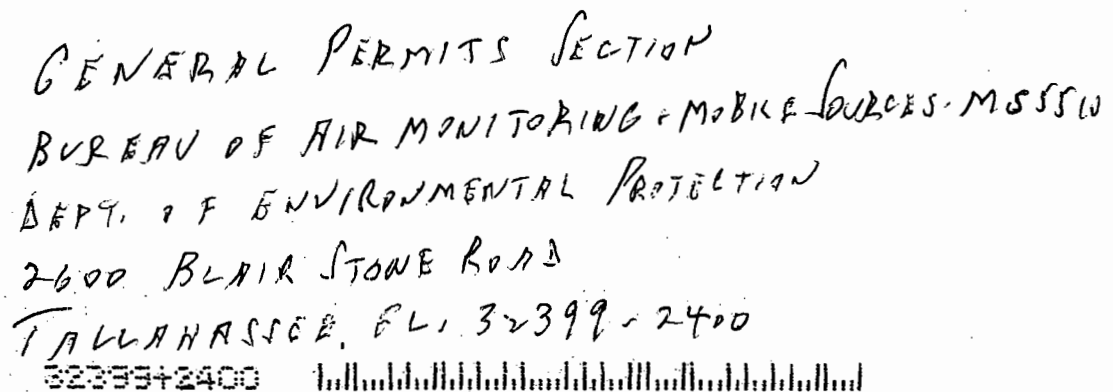 GENERAL PERMITS SECTION
BUREAU OF AIR MONITORING & MOBILE SOURCES. MS5510
DEPT. OF ENVIRONMENTAL PROTECTION
2600 BLAIR STONE ROAD
TALLAHASSEE, FL, 32399-2400
32399+2400